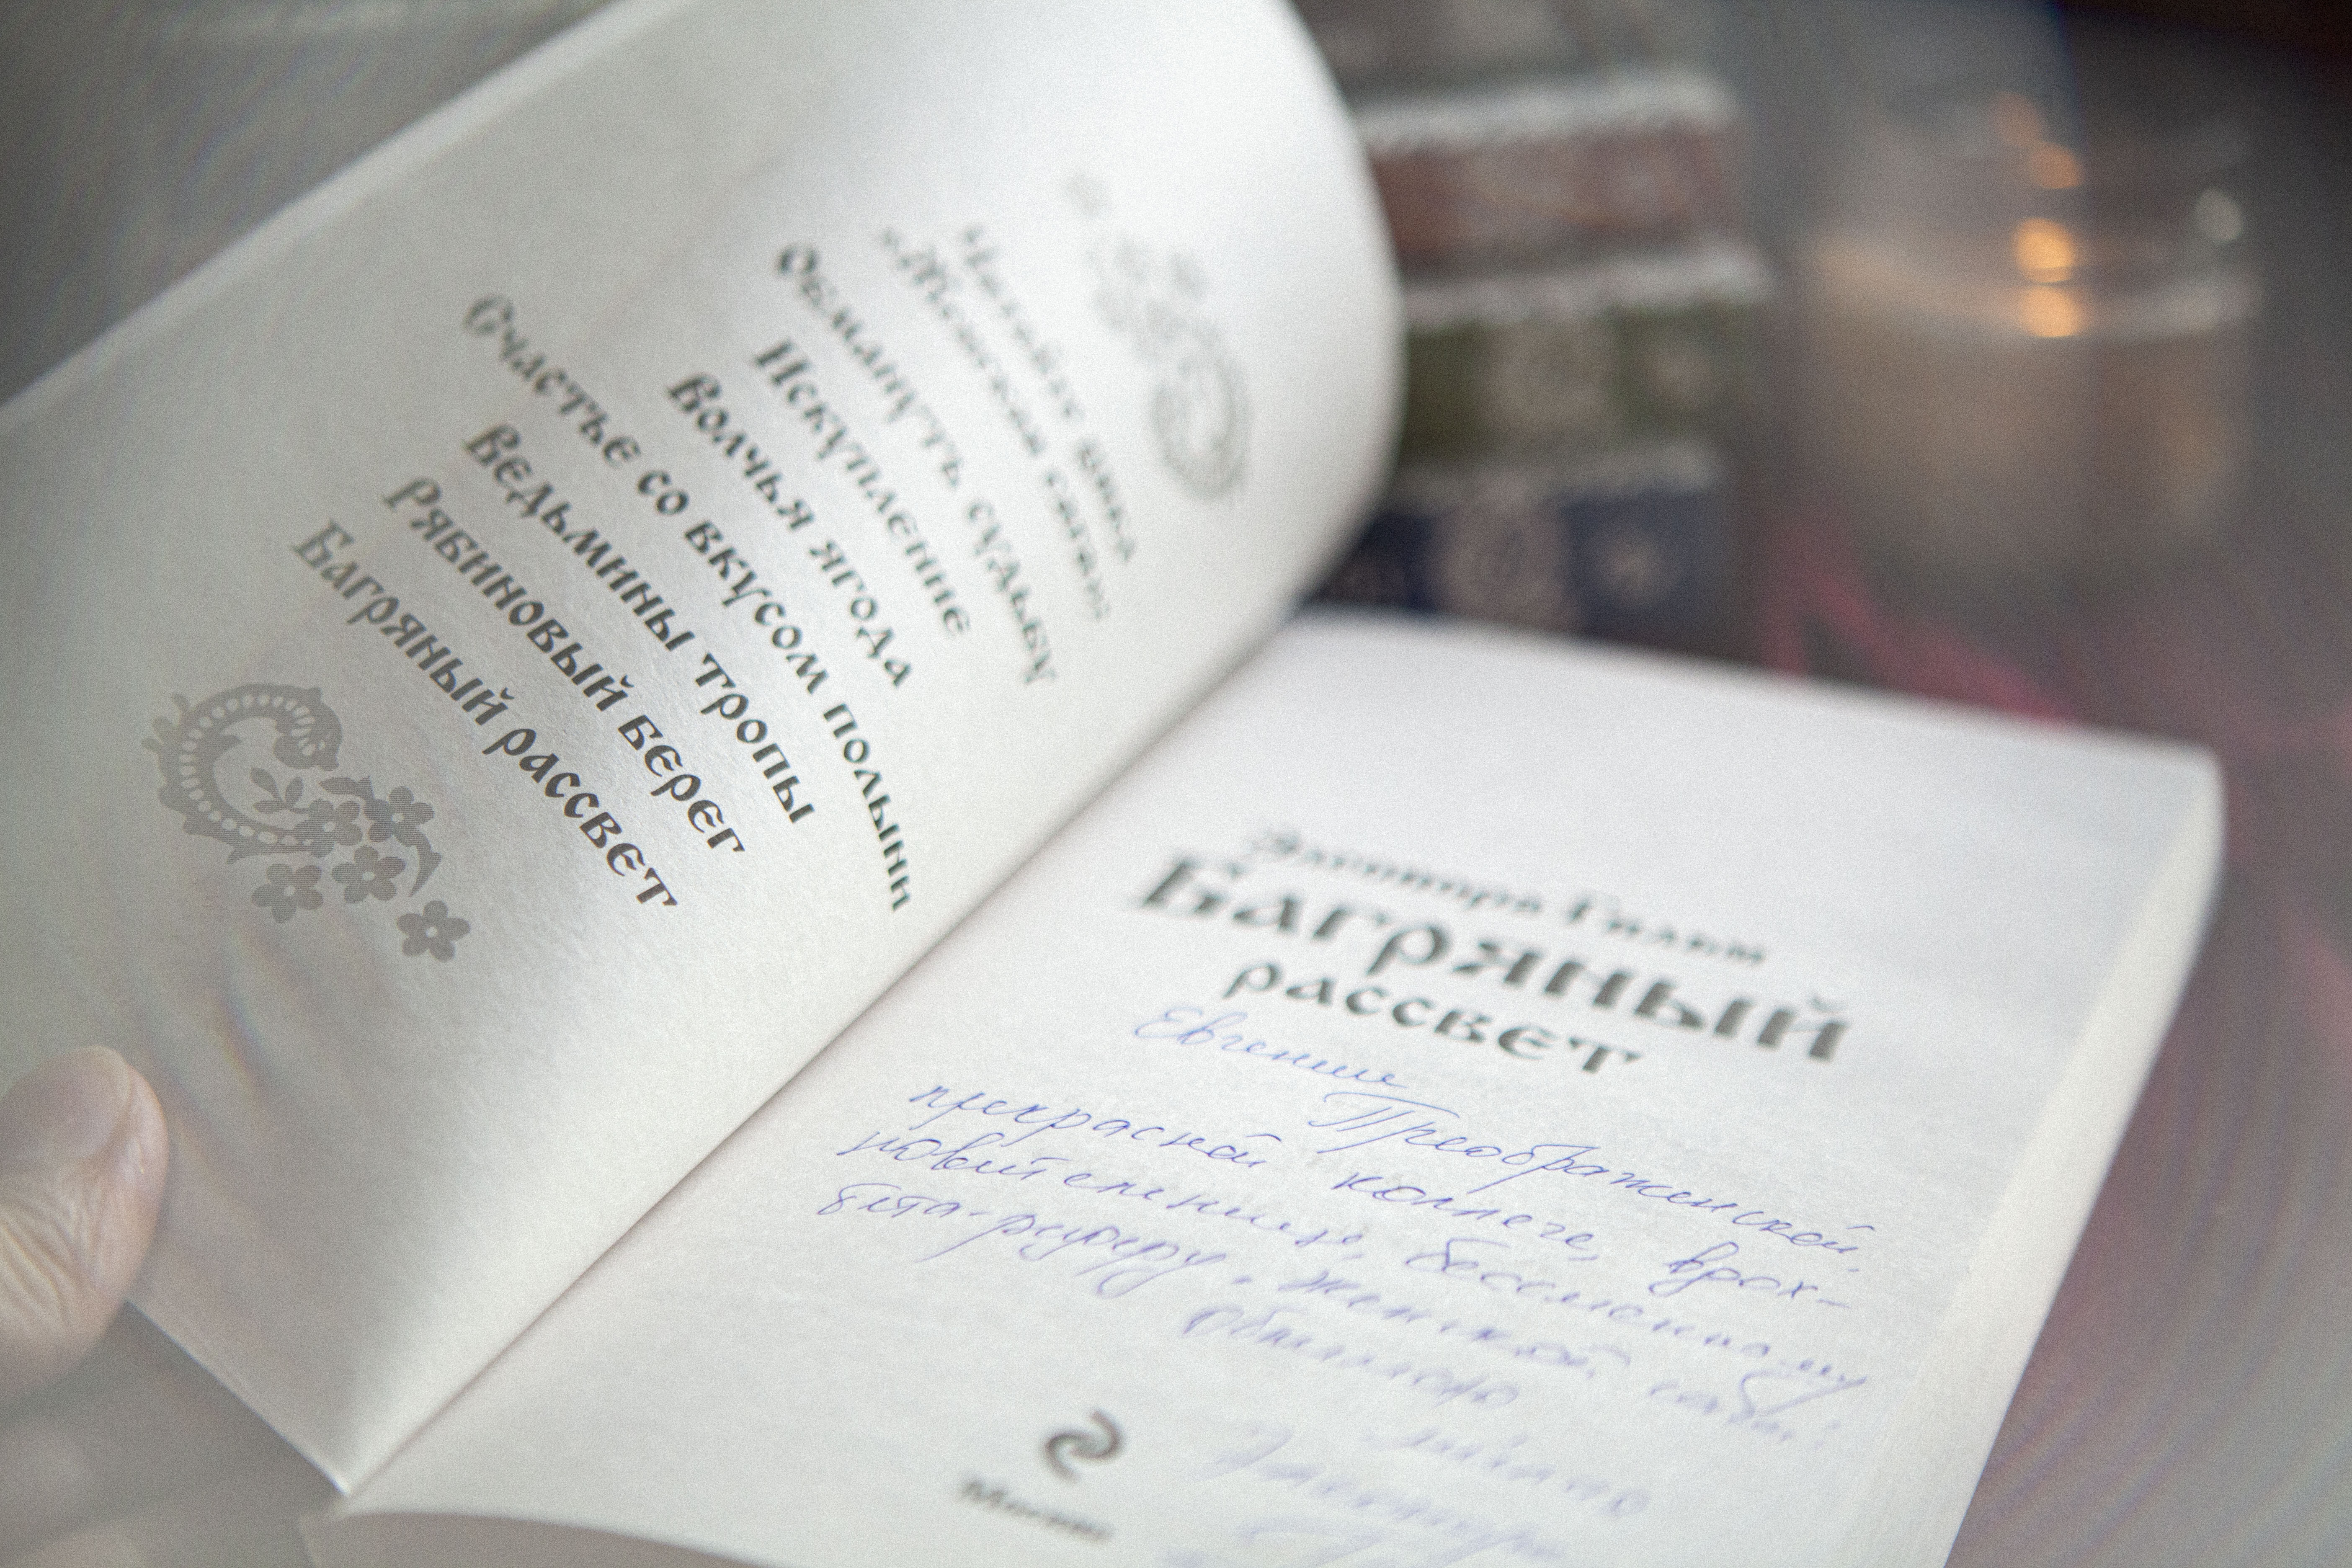 Читайте в
«Женской саге»:
Обмануть судьбу
Искупление
Волчья ягода
Счастье со вкусом полыни
Ведьмины тропы
Рябиновый берег
Багряный рассвет
Элеонора Гильм
Багряный
рассвет
Евгении
Преображенской,
прекрасной коллеге, вдох-
новительнице, бессменному
бета-ридеру. Женской
обнимаю
Элеонора
Москва